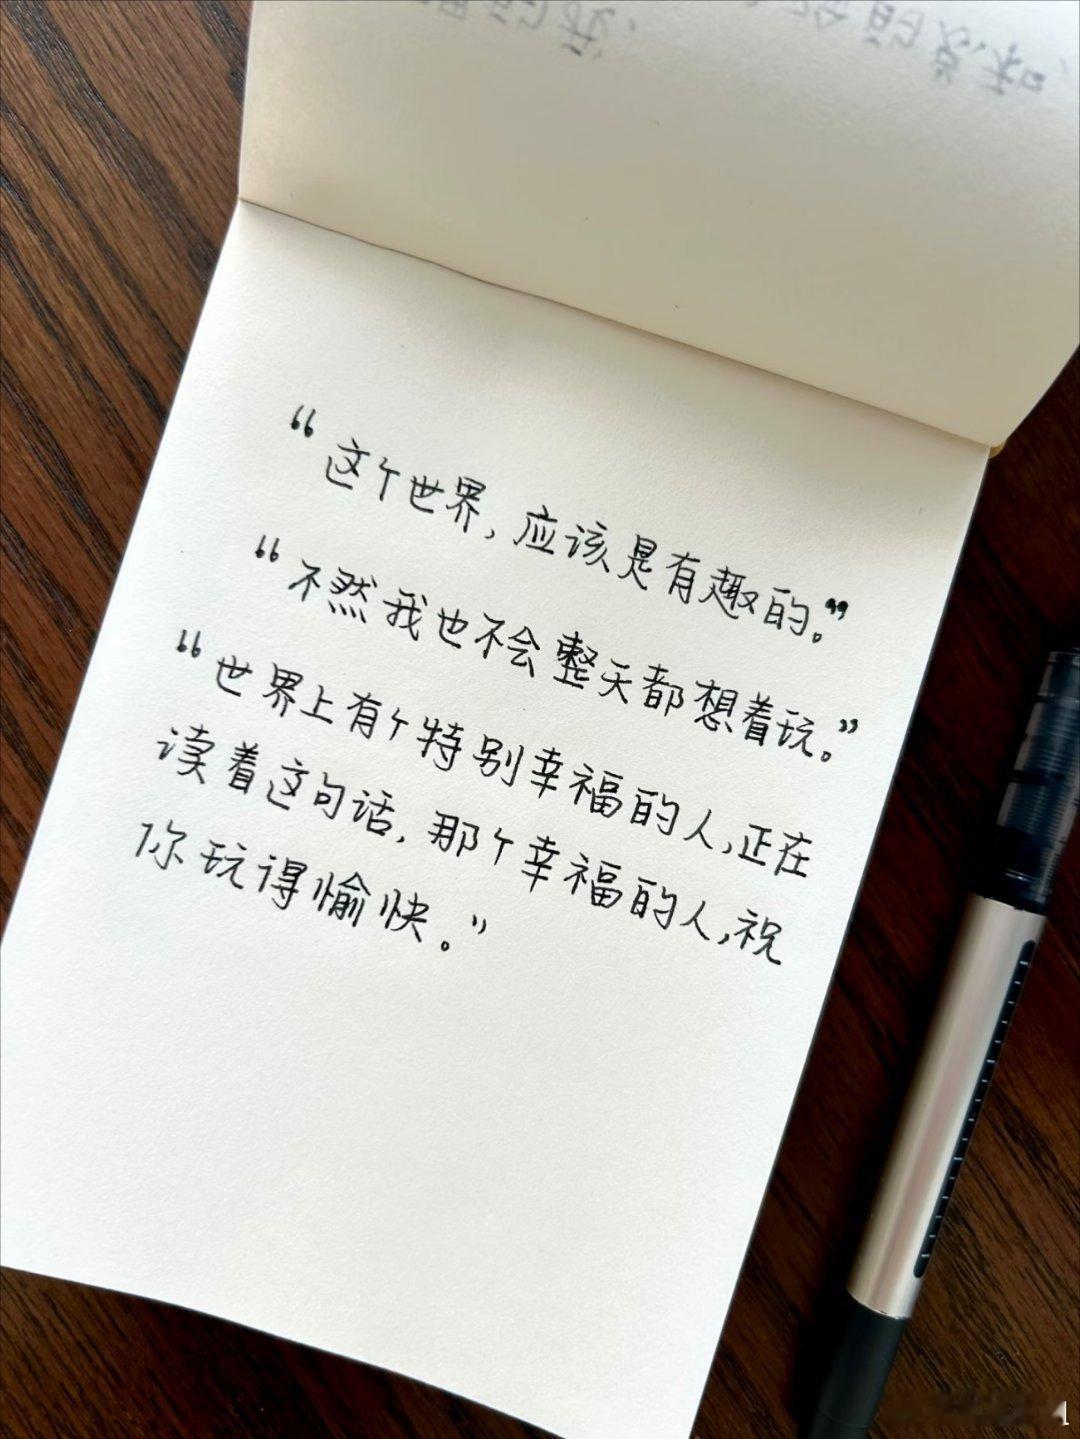 “这个世界，应该是有趣的。”
“不然我也不会整天都想着玩。”
“世界上有个特别幸福的人，正在
读着这句话，那个幸福的人，祝
你玩得愉快。”